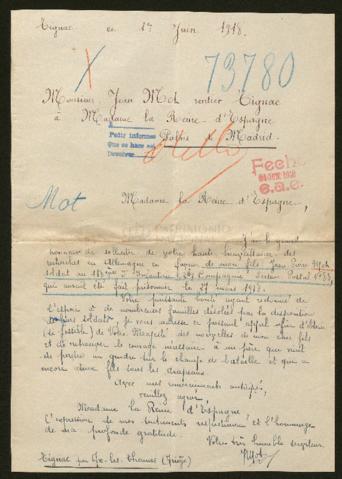 Tignac ce 17 Juin 1918.
X
73780
Monsieur Jean Mot rentier Tignac
à Madame la Reine d'Espagne
Palais de Madrid
Pedir informes
Que se haga est
Mot
Fech
e.a.e.
Madame la Reine d'Espagne,
J'ai le grand
honneur de solliciter de votre haute
recherches en Allemagne en faveur de mon fils Jean Pierre Mot
soldat au Infanterie Compagnie Secteur Postal
qui aurait été fait prisonnier le 27 mars 1918.
Votre puissante bonté ayant redonné de
l'espoir à de nombreuses familles désolées par la disparition
soldat je vous adresse ce pressant appel afin d'obtenir
de Votre Majesté des nouvelles de mon cher fils
et de redonner le courage à un père qui vient
de perdre un gendre sur le champ de bataille et qui a
encore deux fils sous les drapeaux.
Avec mes remerciements anticipés,
veuillez agréer,
Madame la Reine d'Espagne
l'expression de mes sentiments respectueux et l'hommage
de ma profonde gratitude.
Votre très humble serviteur.
Mot
Tignac par Ax-les-Thermes (Ariège)